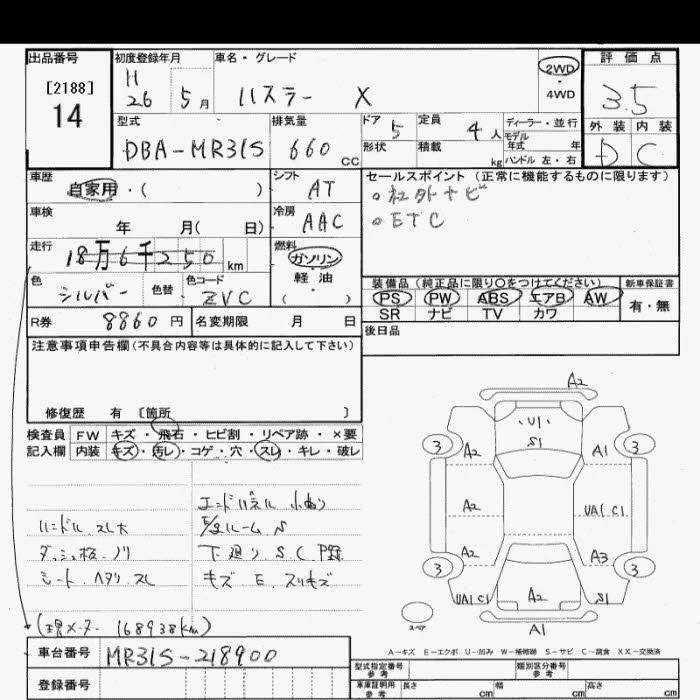 出品番号
[2188]
14
初度登録年月
H
26 5月
車名・グレード
ハスラー X
2WD
・
4WD
評価点
3.5
外装 内装
D C
型式
DBA-MR31S
排気量
660 CC
ドア 5
形状
定員 4人
積載 kg
ディーラー・並行
モデル
年式 年
ハンドル 左・右
車歴
自家用・( )
シフト
AT
セールスポイント (正常に機能するものに限ります)
。社外ナビ
。ETC
車検
年 月( 日)
冷房
AAC
走行
18万6千250 km
燃料
ガソリン
軽・油
( )
色
シルバー
色替
色コード
ZVC
装備品 (純正品に限り〇をつけてください)
PS PW ABS エアB AW
SR ナビ TV カワ
新車保証書
有・無
R券 8860円
名変期限 月 日
後日品
注意事項申告欄(不具合内容等は具体的に記入して下さい)
修復歴 有 〔箇所 〕
検査員 FW キズ・飛石・ヒビ割・リペア跡・×要
記入欄 内装 キズ・汚レ・コゲ・穴・スレ・キレ・破レ
ハンドル スレ大
ダッシュ板 ノリ
シート ヘタリ スレ
下廻り S.C
キズ E スリキズ
A2
U1
S1
3 A2 A1 3
A2 UA1 C1
A2 A3
3 3
UA1 C1 A2 S1
スペア
A1
A-キズ E-エクボ U-凹み W-補修跡 S-サビ C-腐食 XX-交換済
(現メーター 168938km)
車台番号 MR31S-218900
登録番号
型式指定番号
参考
類別区分番号
参考
車庫証明用
参考
長さ cm 幅 cm 高さ cm